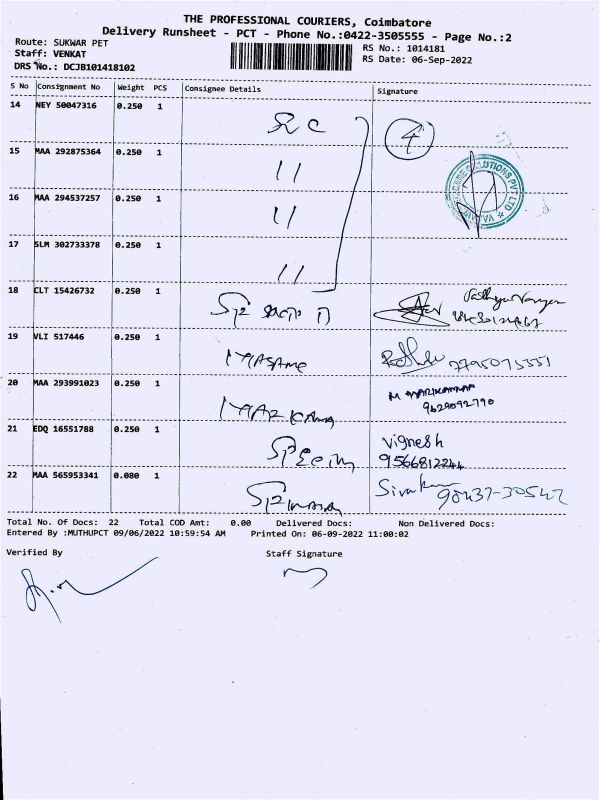 THE PROFESSIONAL COURIERS, Coimbatore
Delivery Runsheet - PCT - Phone No.:0422-3505555 - Page No.:2
Route: SUKWAR PET
RS No.: 1014181
Staff: VENKAT
RS Date: 06-Sep-2022
DRS No.: DCJB101418102
S No Consignment No Weight PCS Consignee Details Signature
14 NEY 50047316 0.250 1
4
15 MAA 292875364 0.250 1 11
16 MAA 294537257 0.250 1 11
17 SLM 302733378 0.250 1 11
18 CLT 15426732 0.250 1
19 VLI 517446 0.250 1
7795075351
20 MAA 293991023 0.250 1
M MARIKANNAN
9629092790
21 EDQ 16551788 0.250 1
Vignesh
9566812244
22 MAA 565953341 0.080 1
Sivakumar
98437-30542
Total No. Of Docs: 22 Total COD Amt: 0.00 Delivered Docs: Non Delivered Docs:
Entered By :MUTHUPCT 09/06/2022 10:59:54 AM Printed On: 06-09-2022 11:00:02
Verified By Staff Signature